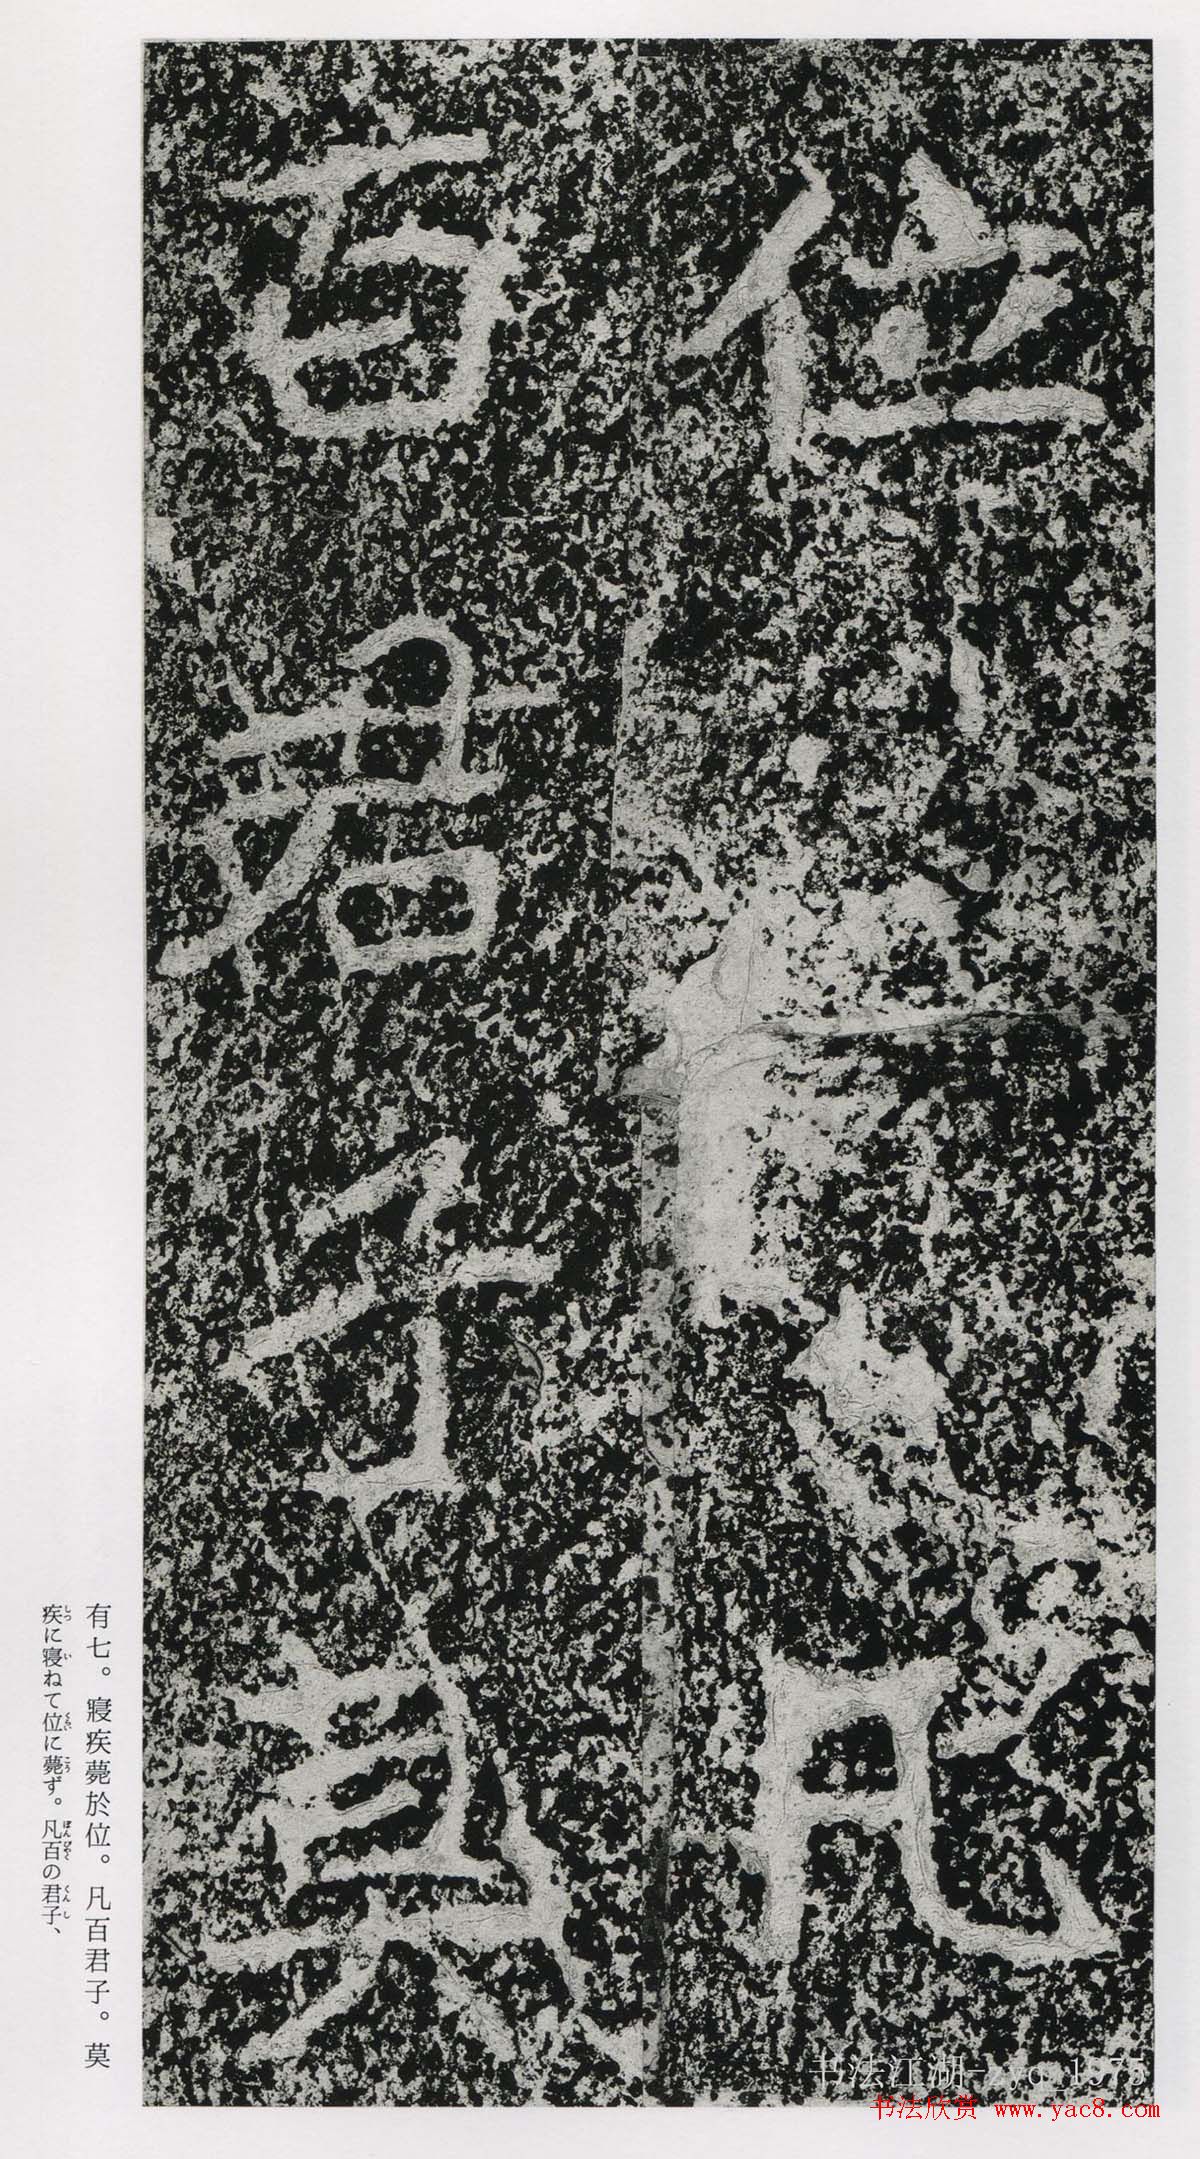 位凡
百君子莫
有七。寝疾薨於位。凡百君子。莫
疾に寝ねて位に薨ず。凡百の君子、
书法江湖-zyq_1975
书法欣赏 www.yac8.com